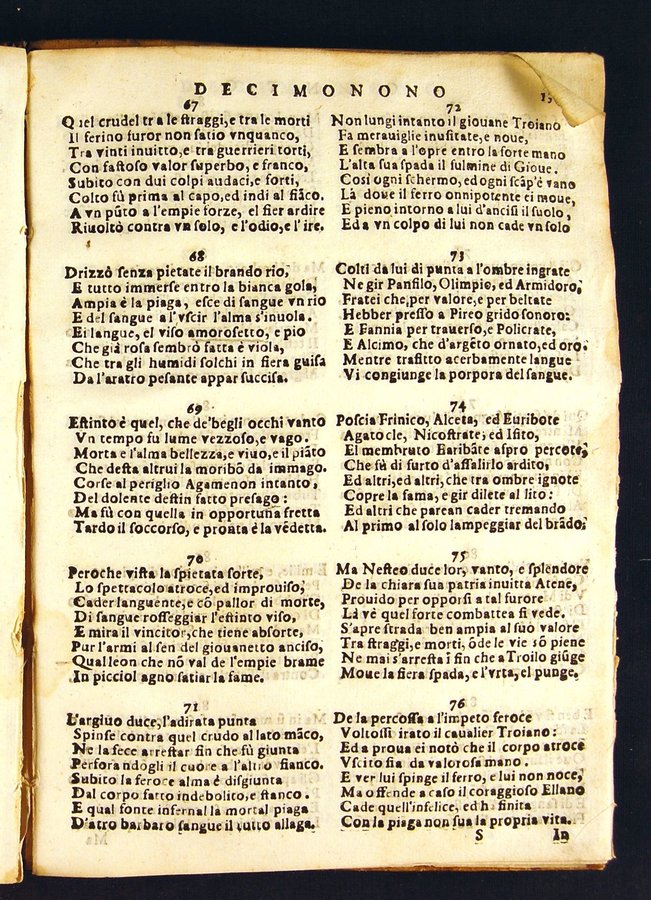 DECIMONONO
67
Quel crudel tra le straggi, e tra le morti
Il ferino furor non satio vnquanco,
Tra vinti inuitto, e tra guerrieri torti,
Con fastoso valor superbo, e franco,
Subito con dui colpi audaci, e forti,
Colto sù prima al capo, ed indi al fiãco.
A vn pũto a l'empie forze, el fier ardire
Riuoltò contra vn solo, e l'odio, e l'ire.
68
Drizzò senza pietate il brando rio,
E tutto immerse entro la bianca gola,
Ampia è la piaga, esce di sangue vn rio
E del sangue a l'vscir l'alma s'inuola.
Ei langue, el viso amorosetto, e pio
Che già rosa sembrò fatta è viola,
Che tra gli humidi solchi in fiera guisa
Da l'aratro pesante appar succisa.
69
Estinto è quel, che de'begli occhi vanto
Vn tempo fu lume vezzoso, e vago.
Morta e l'alma bellezza, e viuo, e il piãto
Che desta altrui la moribõ da immago.
Corse al periglio Agamenon intanto,
Del dolente destin fatto presago:
Ma fù con quella in opportuna fretta
Tardo il soccorso, e pronta è la vẽdetta.
70
Peroche vista la spietata sorte,
Lo spettacolo atroce, ed improuiso,
Cader languente, e cõ pallor di morte,
Di sangue rosseggiar l'estinto viso,
E mira il vincitor, che tiene absorte,
Pur l'armi al sen del giouanetto anciso,
Qual leon che nõ val de l'empie brame
In picciol agno satiar la fame.
71
L'argiuo duce, l'adirata punta
Spinse contra quel crudo al lato mãco,
Ne la fece arrestar fin che sù giunta
Perforandogli il cuore a l'altro fianco.
Subito la feroce alma è disgiunta
Dal corpo fatto indebolito, e stanco.
E qual fonte infernal la mortal piaga
D'atro barbaro sangue il tutto allaga.
72
Non lungi intanto il giouane Troiano
Fa merauiglie inusitate, e noue,
E sembra a l'opre entro la forte mano
L'alta sua spada il fulmine di Gioue.
Cosi ogni schermo, ed ogni scãp'è vano
Là doue il ferro onnipotente ei moue,
E pieno intorno a lui d'ancisi il suolo,
Ed a vn colpo di lui non cade vn solo
73
Colti da lui di punta a l'ombre ingrate
Ne gir Panfilo, Olimpio, ed Armidoro,
Fratei che, per valore, e per beltate
Hebber presso a Pireo grido sonoro:
E Fannia per trauerso, e Policrate,
E Alcimo, che d'argẽto ornato, ed oro.
Mentre trafitto acerbamente langue
Vi congiunge la porpora del sangue.
74
Poscia Frinico, Alceta, ed Euribote
Agatocle, Nicostrate, ed Isito,
El membruto Earibâte aspro percote,
Che fù di furto d'assalirlo ardito,
Ed altri, ed altri, che tra ombre ignote
Copre la fama, e gir dilete al lito:
Ed altri che parean cader tremando
Al primo al solo lampeggiar del brãdo.
75
Ma Nesteo duce lor, vanto, e splendore
De la chiara sua patria inuitta Atene,
Prouido per opporsi a tal furore
Là vè quel forte combattea si vede.
S'apre strada ben ampia al suo valore
Tra straggi, e morti, õde le vie sõ piene
Ne mai s'arresta ĩ fin che a Troilo giũge
Moue la fiera spada, e l'vrta, el punge.
76
De la percossa a l'impeto feroce
Voltossi irato il caualier Troiano:
Ed a proua ei notò che il corpo atroce
Vscito sia da valorosa mano.
E ver lui spinge il ferro, e lui non noce,
Ma offende a caso il coraggioso Ellano
Cade quell'infelice, ed hà finita
Con la piaga non sua la propria vita.
S In